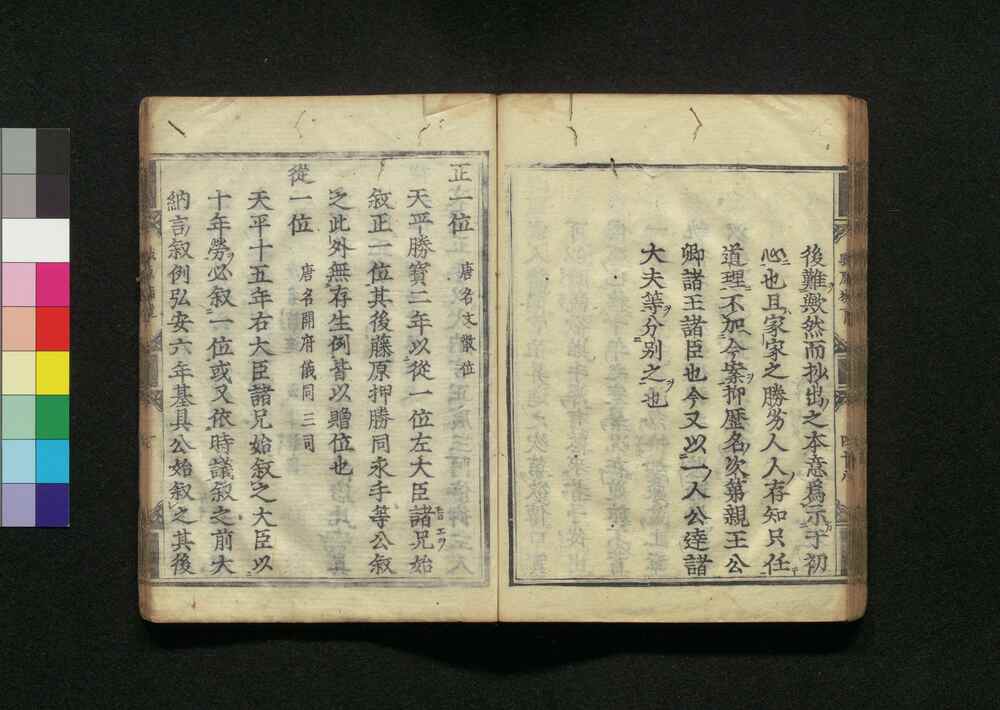 後難歟然而抄出之本意爲示于初
心也且家家之勝劣人人存知只任
道理不加今案抑歴名次第親王公
卿諸王諸臣也今又以一人公達諸
大夫等分別之也
正一位 唐名文散位
天平勝寶二年以從一位左大臣諸兄始
叙正一位其後藤原押勝同永手等公叙
之此外無存生例昔以贈位也
從一位 唐名開府儀同三司
天平十五年右大臣諸兄始叙之大臣以
十年勞必叙一位或又依時議叙之前大
納言叙例弘安六年基具公始叙之其後